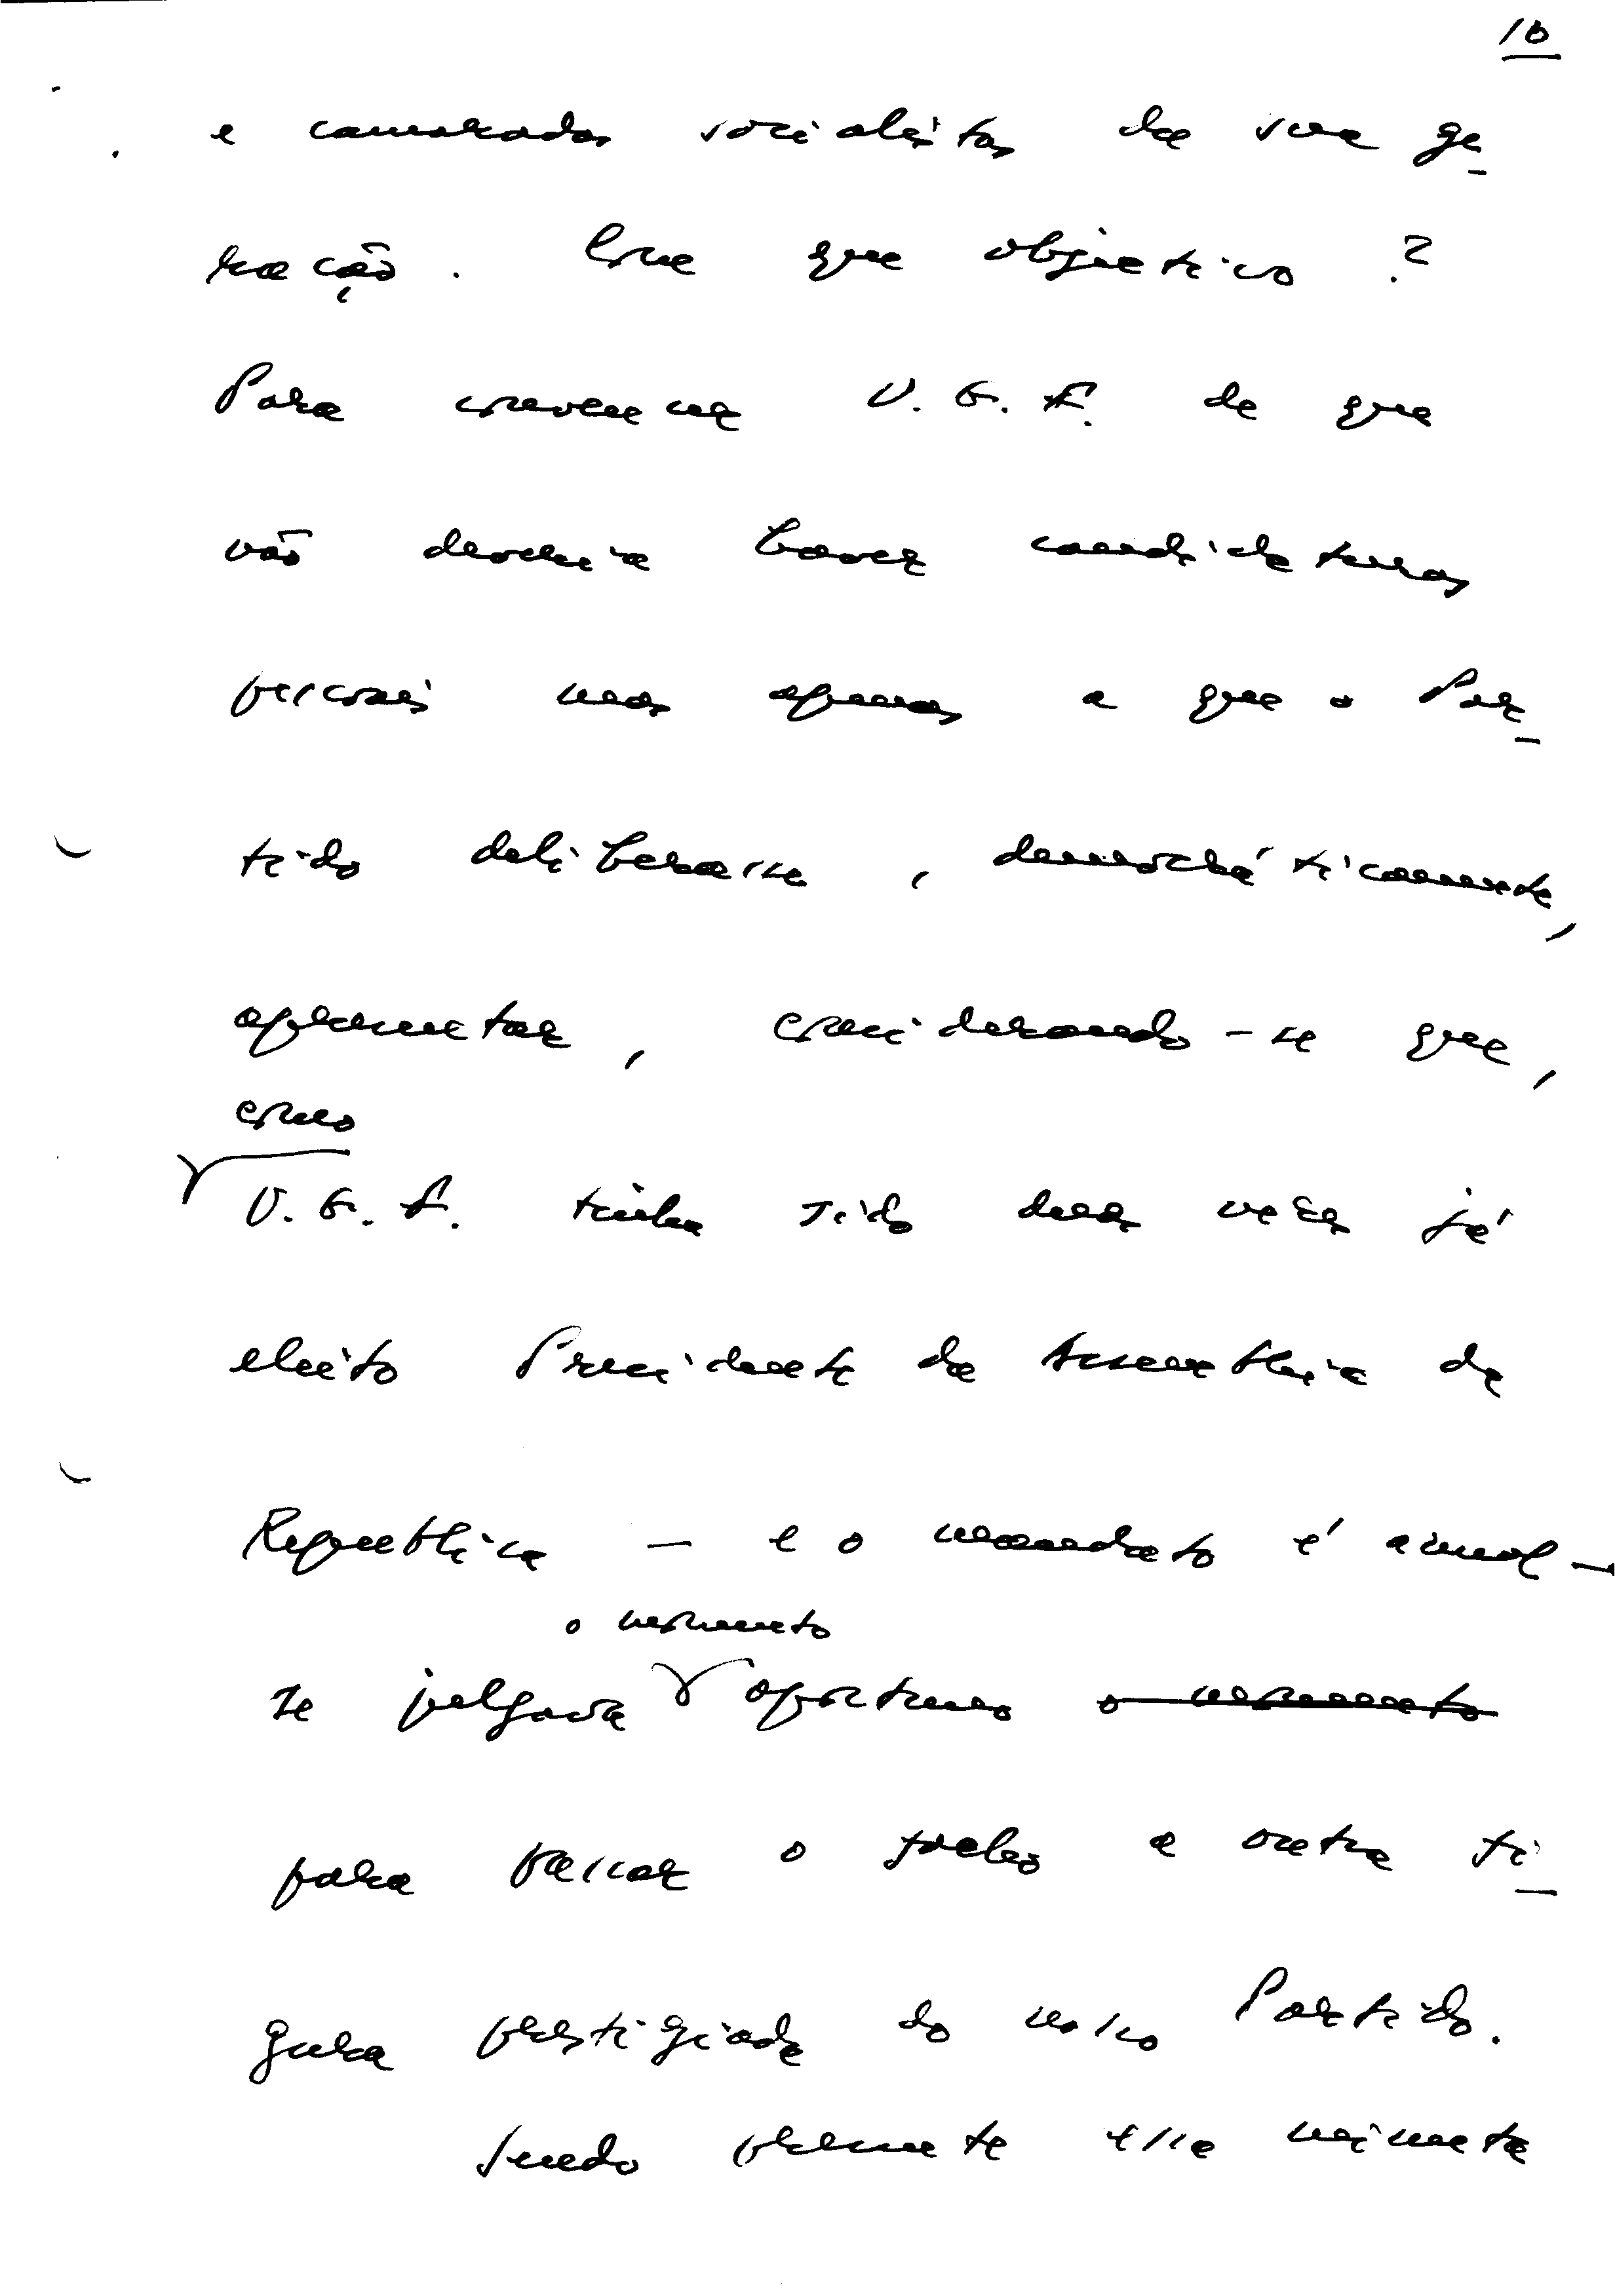 10
e camaradas socialistas da sua ge-
ração. Com que objectivo?
Para convencer V. G. F. de que
não deveria haver candidaturas
pessoais mas apenas a que o Par-
tido deliberasse, democráticamente,
apresentar, considerando-se que,
como
V. G. F. tinha sido duas vezes já
eleito Presidente da Assembleia da
República — e o mandato é anual —
o momento
se julgava oportuno o momento
para passar o facho a outra fi-
gura prestigiada do nosso Partido.
Sendo presente essa minuta